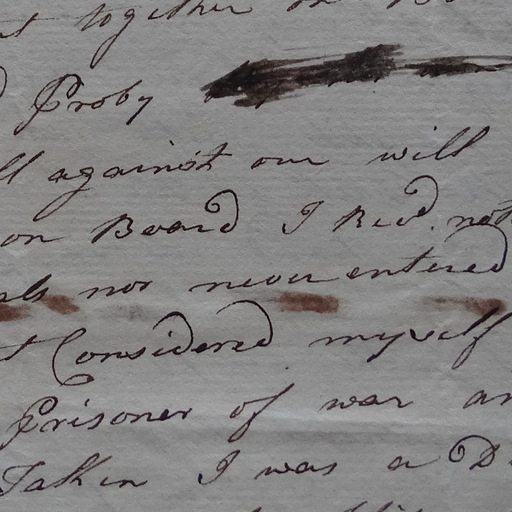 together
Proby
ll against our will
on Board I Recd. not
nor never entered
Considered myself
Prisoner of war an
Taken I was a D